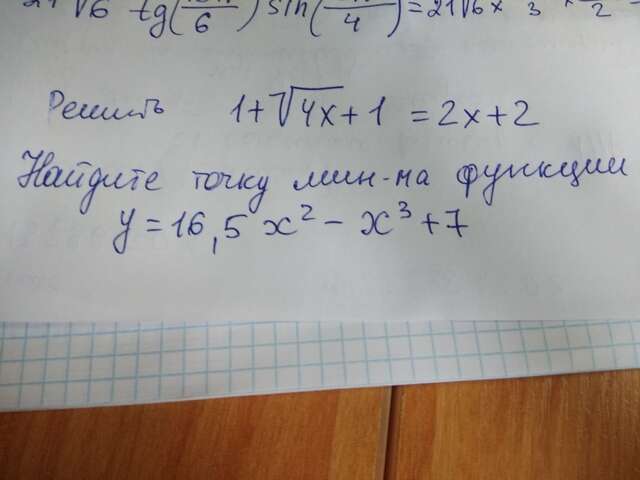 √6 tg( /6) sin( /4) = 21√6 × 3 × /2
Решить 1+√4x+1 = 2x+2
Найдите точку мин-ма функции
y = 16,5 x² − x³ + 7